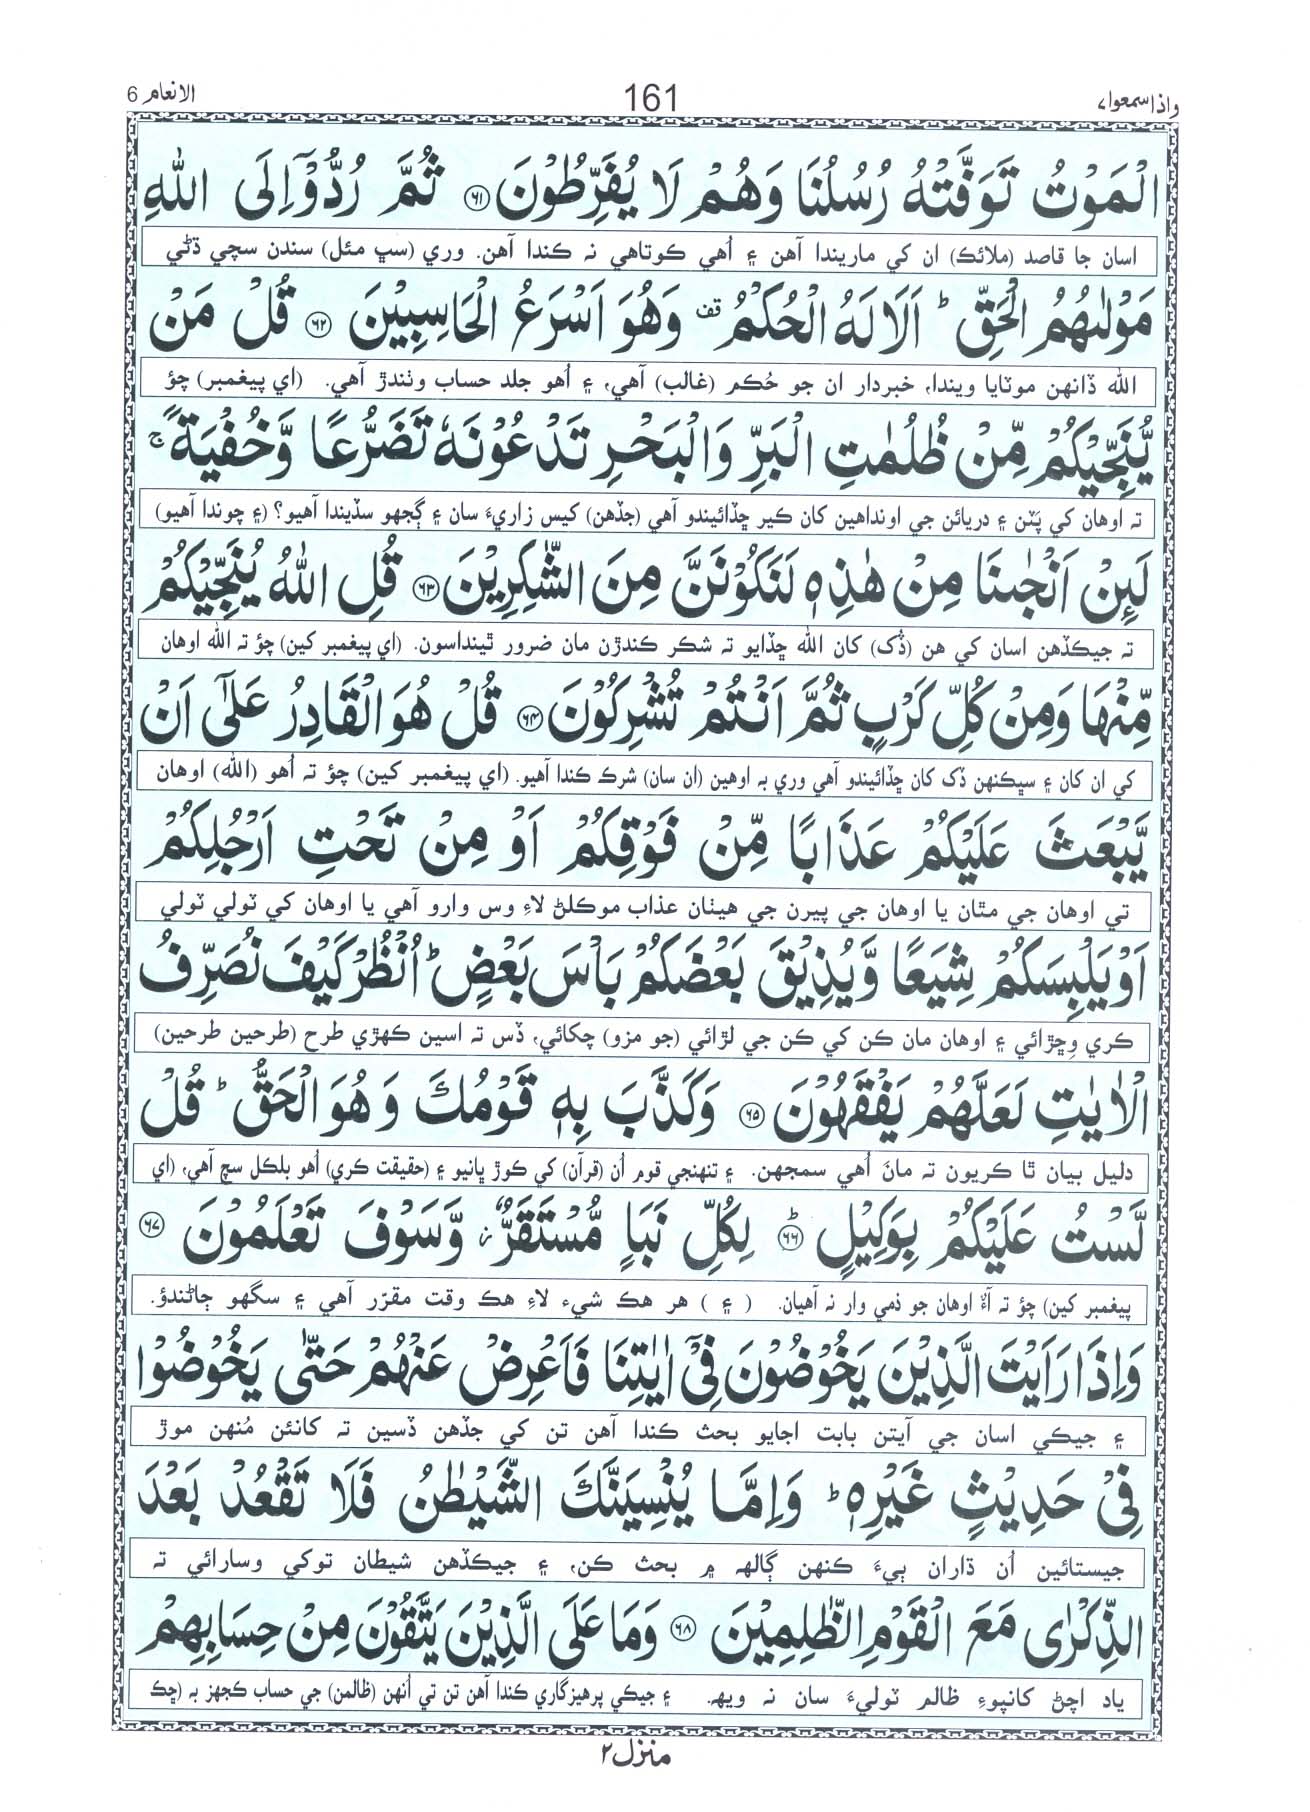 واذاسمعوا٧ 161 الانعام 6
الْمَوْتُ تَوَفَّتْهُ رُسُلُنَا وَهُمْ لَا يُفَرِّطُوْنَ ﴿٦١﴾ ثُمَّ رُدُّوْۤا اِلَى اللّٰهِ
اسان جا قاصد (ملائڪ) ان کي ماريندا آهن ۽ اُهي ڪوتاهي نہ ڪندا آهن. وري (سڀ مئل) سندن سچي ڌڻي
مَوْلٰىهُمُ الْحَقِّ ؕ اَلَا لَهُ الْحُكْمُ قف وَهُوَ اَسْرَعُ الْحَاسِبِيْنَ ﴿٦٢﴾ قُلْ مَنْ
الله ڏانهن موٽايا ويندا، خبردار ان جو حُڪم (غالب) آهي، ۽ اُهو جلد حساب وٺندڙ آهي. (اي پيغمبر) چؤ
يُّنَجِّيْكُمْ مِّنْ ظُلُمٰتِ الْبَرِّ وَالْبَحْرِ تَدْعُوْنَهٗ تَضَرُّعًا وَّخُفْيَةً ۚ
تہ اوهان کي پَٽن ۽ دريائن جي اونداهين کان ڪير ڇڏائيندو آهي (جڏهن) کيس زاريءَ سان ۽ ڳجھو سڏيندا آهيو؟ (۽ چوندا آهيو)
لَئِنْ اَنْجٰىنَا مِنْ هٰذِهٖ لَنَكُوْنَنَّ مِنَ الشّٰكِرِيْنَ ﴿٦٣﴾ قُلِ اللّٰهُ يُنَجِّيْكُمْ
تہ جيڪڏهن اسان کي هن (ڏُک) کان الله ڇڏايو تہ شڪر ڪندڙن مان ضرور ٿينداسون. (اي پيغمبر کين) چؤ تہ الله اوهان
مِّنْهَا وَمِنْ كُلِّ كَرْبٍ ثُمَّ اَنْتُمْ تُشْرِكُوْنَ ﴿٦٤﴾ قُلْ هُوَ الْقَادِرُ عَلٰۤى اَنْ
کي ان کان ۽ سڀڪنهن ڏک کان ڇڏائيندو آهي وري بہ اوهين (ان سان) شرڪ ڪندا آهيو. (اي پيغمبر کين) چؤ تہ اُهو (الله) اوهان
يَّبْعَثَ عَلَيْكُمْ عَذَابًا مِّنْ فَوْقِكُمْ اَوْ مِنْ تَحْتِ اَرْجُلِكُمْ
تي اوهان جي مٿان يا اوهان جي پيرن جي هيٺان عذاب موڪلڻ لاءِ وس وارو آهي يا اوهان کي ٽولي ٽولي
اَوْ يَلْبِسَكُمْ شِيَعًا وَّيُذِيْقَ بَعْضَكُمْ بَاْسَ بَعْضٍ ؕ اُنْظُرْ كَيْفَ نُصَرِّفُ
ڪري وِڇڙائي ۽ اوهان مان ڪن کي ڪن جي لڙائي (جو مزو) چکائي، ڏس تہ اسين ڪهڙي طرح (طرحين طرحين)
الْاٰيٰتِ لَعَلَّهُمْ يَفْقَهُوْنَ ﴿٦٥﴾ وَكَذَّبَ بِهٖ قَوْمُكَ وَهُوَ الْحَقُّ ؕ قُلْ
دليل بيان ٿا ڪريون تہ مانَ اُهي سمجهن. ۽ تنهنجي قوم اُن (قرآن) کي ڪوڙ ڀانيو ۽ (حقيقت ڪري) اُهو بلڪل سچ آهي، (اي
لَّسْتُ عَلَيْكُمْ بِوَكِيْلٍ ﴿٦٦﴾ؕ لِكُلِّ نَبَاٍ مُّسْتَقَرٌّ ؗ وَّسَوْفَ تَعْلَمُوْنَ ﴿٦٧﴾
پيغمبر کين) چؤ تہ آءٌ اوهان جو ذمي وار نہ آهيان. ( ۽ ) هر هڪ شيء لاءِ هڪ وقت مقرّر آهي ۽ سگهو ڄاڻندؤ.
وَاِذَا رَاَيْتَ الَّذِيْنَ يَخُوْضُوْنَ فِيْۤ اٰيٰتِنَا فَاَعْرِضْ عَنْهُمْ حَتّٰى يَخُوْضُوْا
۽ جيڪي اسان جي آيتن بابت اجايو بحث ڪندا آهن تن کي جڏهن ڏسين تہ کانئن مُنهن موڙ
فِيْ حَدِيْثٍ غَيْرِهٖ ؕ وَاِمَّا يُنْسِيَنَّكَ الشَّيْطٰنُ فَلَا تَقْعُدْ بَعْدَ
جيستائين اُن ڌاران ٻيءَ ڪنهن ڳالهہ ۾ بحث ڪن، ۽ جيڪڏهن شيطان توکي وسارائي تہ
الذِّكْرٰى مَعَ الْقَوْمِ الظّٰلِمِيْنَ ﴿٦٨﴾ وَمَا عَلَى الَّذِيْنَ يَتَّقُوْنَ مِنْ حِسَابِهِمْ
ياد اچڻ کانپوءِ ظالم ٽوليءَ سان نہ ويهہ. ۽ جيڪي پرهيزگاري ڪندا آهن تن تي اُنهن (ظالمن) جي حساب ڪجهز بہ (ڇڪ
منزل٢